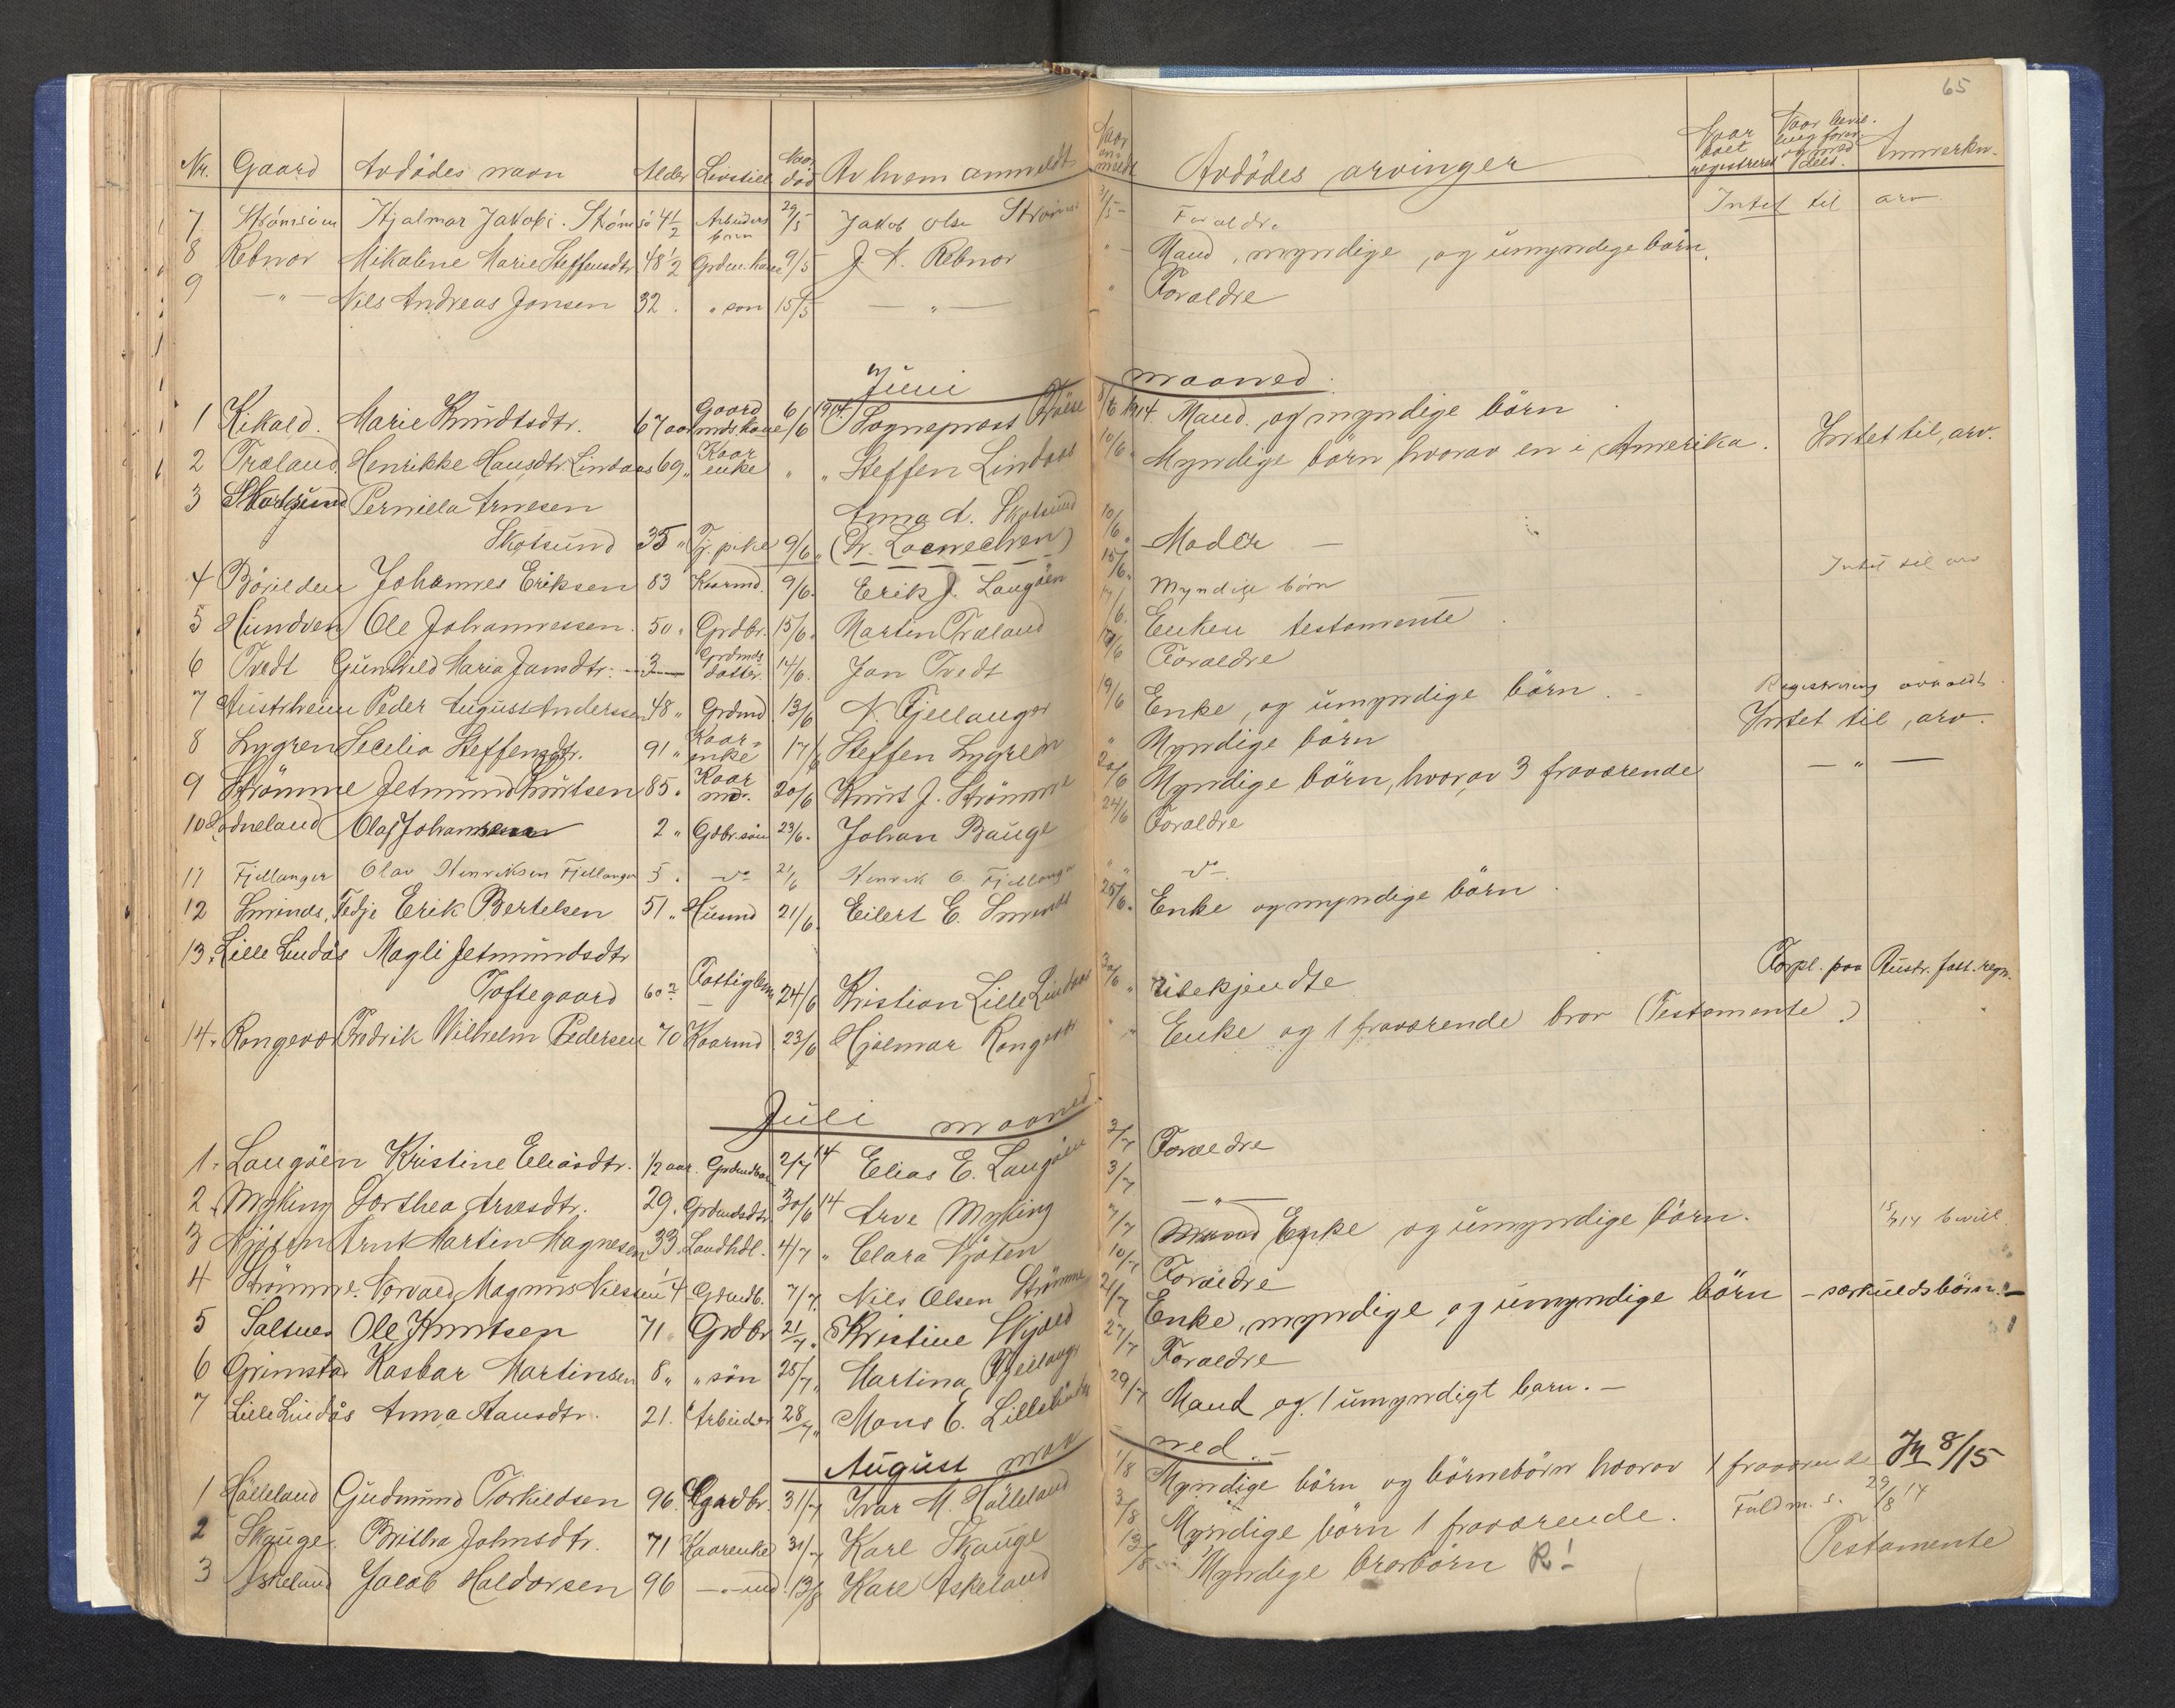 65
Nr. Gaard Avdödes navn Alder Livstill Naar död Av hvem anmeldt Naar anmeldt Avdödes arvinger Naar boet registreret Anmerkn.
7 Hjalmar Jakobs. Ströms 4 1/2 Arbeiders barn 29/5 Jakob Olsen 3/5 Foraldre Intet til arv
8 Rebnor Mikaline Marie Steffensdtr 48 1/2 Grdm. kone 9/5 J. N. Rebnor " Mand, myndige, og umyndige börn.
9 — " — Nils Andreas Jonsen 32. " son 15/5 — " — " Foraldre
Juni maaned.
1 Kikald. Marie Knudtsdtr. 67 aar Gaard mds. kone 6/6 1914. Sogneprest 8/6 1914. Mand og myndige börn
2 Træland Henrikke Hansdtr. Lindaas 69 " Kaar enke " " Steffen Lindaas 10/6 " Myndige börn hvorav en i Amerika. Intet til, arv.
3 Pernilla Arnesen Anna A. Skotsund 10/6
Skotsund 35 " Tj. pike 9/6 " Moder —
4 Johannes Eriksen 83 Kaarmd. 9/6. Erik J. Langöen 15/6. Myndige börn Intet til arv
5 Hundven Ole Johannessen. 50 " Grdbr. 15/6. Martin Træland /6. Enken testamente.
6 Tvedt Gunhild Maria Jansdtr. — 3 — Grdmds datter. 14/6. Jan Tvedt /6 Foraldre
7 Austrheim Peder August Anderssen 48 " Grdmd 13/6 N. Fjellanger 19/6 Enke, og umyndige börn. - Registrering avholdt.
8 Lygren Secelia Steffensdtr. 91 " Kaar- enke 17/6 Steffen Lygren " Myndige börn Intet til, arv.
9 Strömme Jetmund Knutsen 85. Kaar md. 20/6 Knut J. Strömme 20/6 Myndige börn, hvorav 3 fraværende — " —
10 Hodneland Olaf Johannesen 2 " Gdbr. sön 23/6. Johan Bauge 24/6 Foraldre
11 Fjellanger Olav Henriksen Fjellanger 5. do 21/6 Henrik O. Fjellanger " do
12 Sminds, Fedje Erik Bertelsen 51 " Husmd 21/6. Eilert E. 25/6. Enke og myndige börn.
13. Lille Lindås Magli Jetmundsdtr
Toftegaard 60? Fattiglem 24/6 Kristian Lille Lindaas 30/6 " ubekjendte Forpl. paa Austr. fatt. regn.
14. Rongevær Fredrik Wilhelm Pedersen 70 Kaarmd 23/6 Hjalmar " Enke og 1 fraværende bror (Testamente.)
Juli maaned.
1. Langöen Kristine Eliasdtr. 1/2 aar. 2/7 14 Elias E. Langöen 2/7 Foraldre
2. Myking Dorthea Arvesdtr. 29. Grdmdsdtr. 30/6 14 Arve Myking 3/7 — " —
3 Njöten Arnt Martin Magnesen 33. Landhdl. 4/7 " Clara Njöten 7/7 Enke og umyndige börn. 15/7 14 bevill.
4 Strömme. Norvald Magnus Nilssen 1/4 Grdmdb. 7/7. Nils Olsen Strömme 10/7 Foraldre
5 Saltnes Ole Knutsen 71 " Grdbr 21/7. Kristine Skjold 21/7 Enke, myndige og umyndige börn — særkuldsbörn. —
6 Grimstad Kasbar Martinsen 8 " " sön 25/7 " Martina Fjellanger 27/7 Foraldre
7 Lille Lindås Anna Hansdtr. 21. Arbeider 28/7 " Mons E. Lillelindås 29/7 Mand og 1 umyndigt barn. —
August maaned. —
1 Hölleland Gudmund Torkildsen 96. Grdbr. 31/7 Ivar M. Hölleland 1/8 Myndige börn og börnebörn hvorav 1 fraværende 8/15
2 Skauge Britha Johnsdtr. 71 Kaarenke 31/7 Karl Skauge 3/8 Myndige börn 1 fraværende. Fuldm. s. 29/8 14
3 Askeland Jakob Haldorsen 96 — " — md. 13/8 Karl Askeland 13/8 Myndige brorbörn R! Testamente